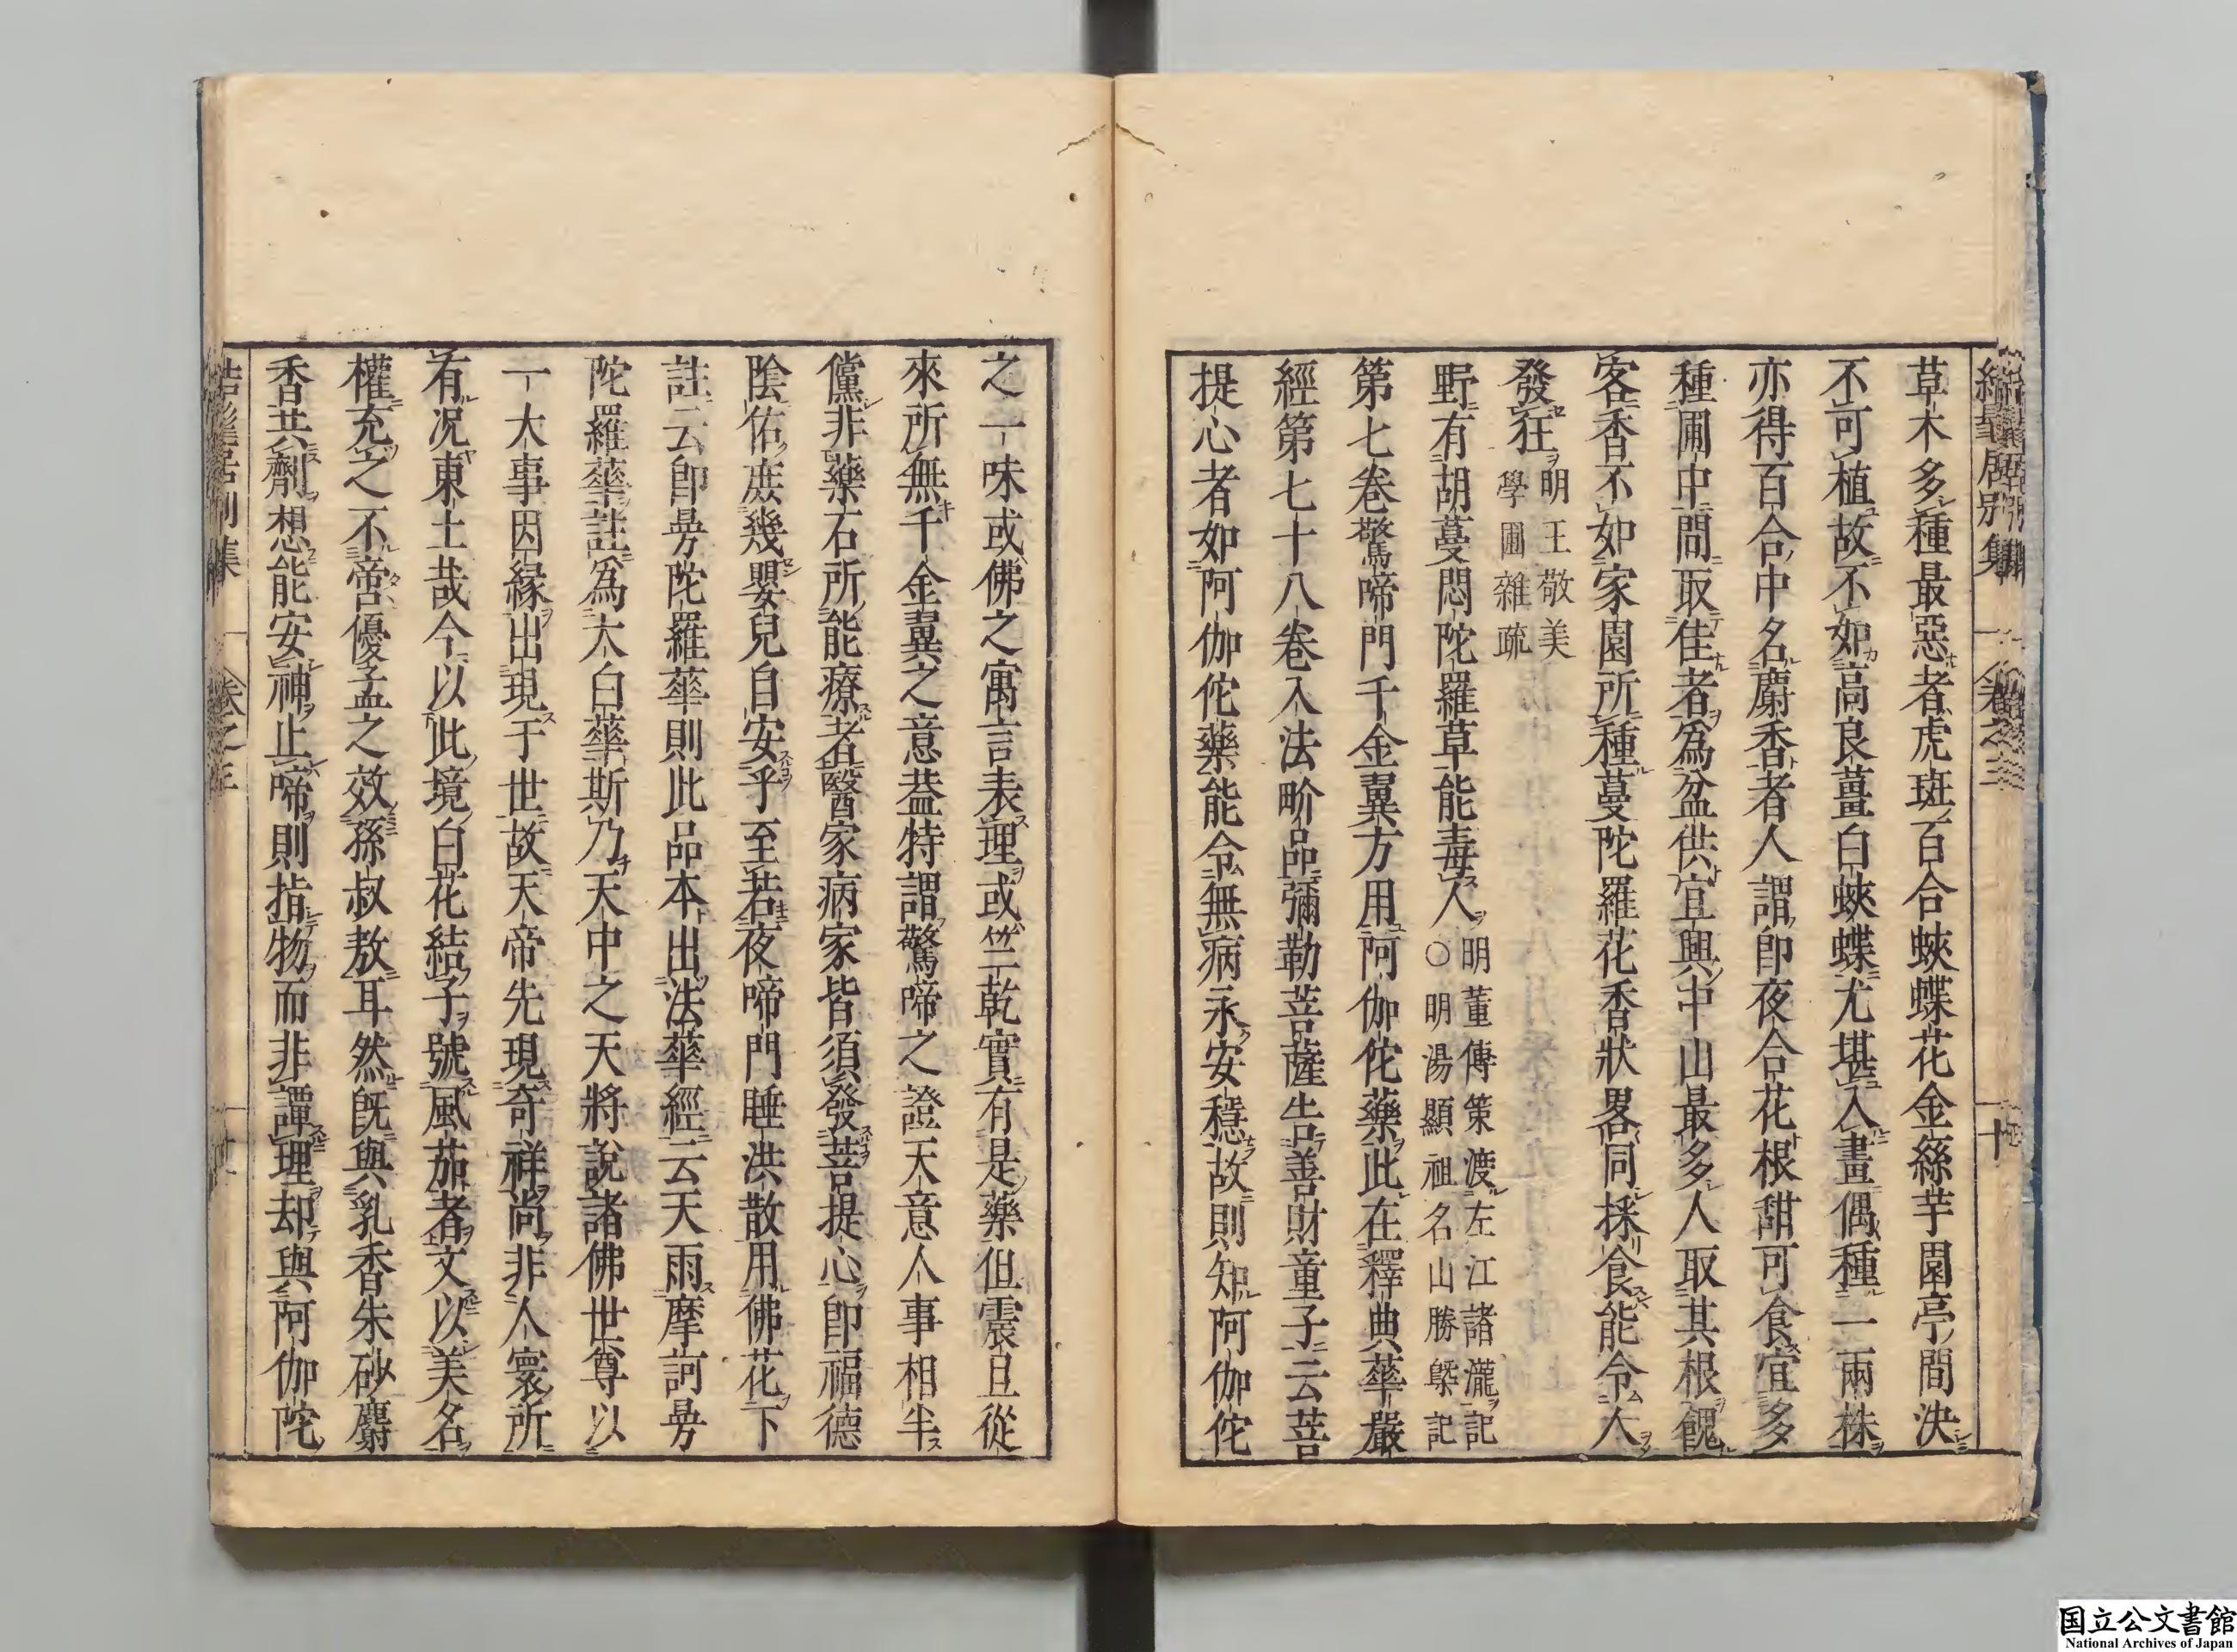 結髦居別集
卷之三
十
草木多種最惡者虎斑百合蛺蝶花金絲芋園亭間決
不可植故不如高良薑白蛺蝶尤堪入畫偶種一兩株
亦得百合中名麝香者人謂卽夜合花根甜可食宜多
種圃中問取佳者爲盆供宜興中山最多人取其根餽
客香不如家園所種蔓陀羅花香狀畧同採食能令人
發狂
明王敬美
學圃雜疏
野有胡蔓悶陀羅草能毒人
明董傳策渡左江諸瀧記
○明湯顯祖名山勝槩記
第七卷驚啼門千金翼方用阿伽佗藥此在釋典華嚴
經第七十八卷入法界品卽彌勒菩薩告善財童子云菩
提心者如阿伽佗藥能令無病永安穩故則知阿伽佗
之一味或佛之寓言表理或竺乾實有是藥但震旦從
來所無千金翼之意葢特謂驚啼之證天意人事相半
儻非藥石所能療者醫家病家皆須發菩提心卽福德
陰佑庶幾嬰兒自安乎至若夜啼門睡洪散用佛花下
註云卽曼陀羅華則此品本出法華經云天雨摩訶曼
陀羅華註爲大白華斯乃天中之天將說諸佛世尊以
一大事因緣出現于世故天帝先現奇祥尚非人寰所
有况東土哉今以此境白花結子號風茄者文以美名
權充之不啻優孟之效孫叔敖耳然旣與乳香朱砂麝
香共劑想能安神止啼則指物而非譚理却與阿伽陀
結髦居別集
卷之三
国立公文書館
National Archives of Japan